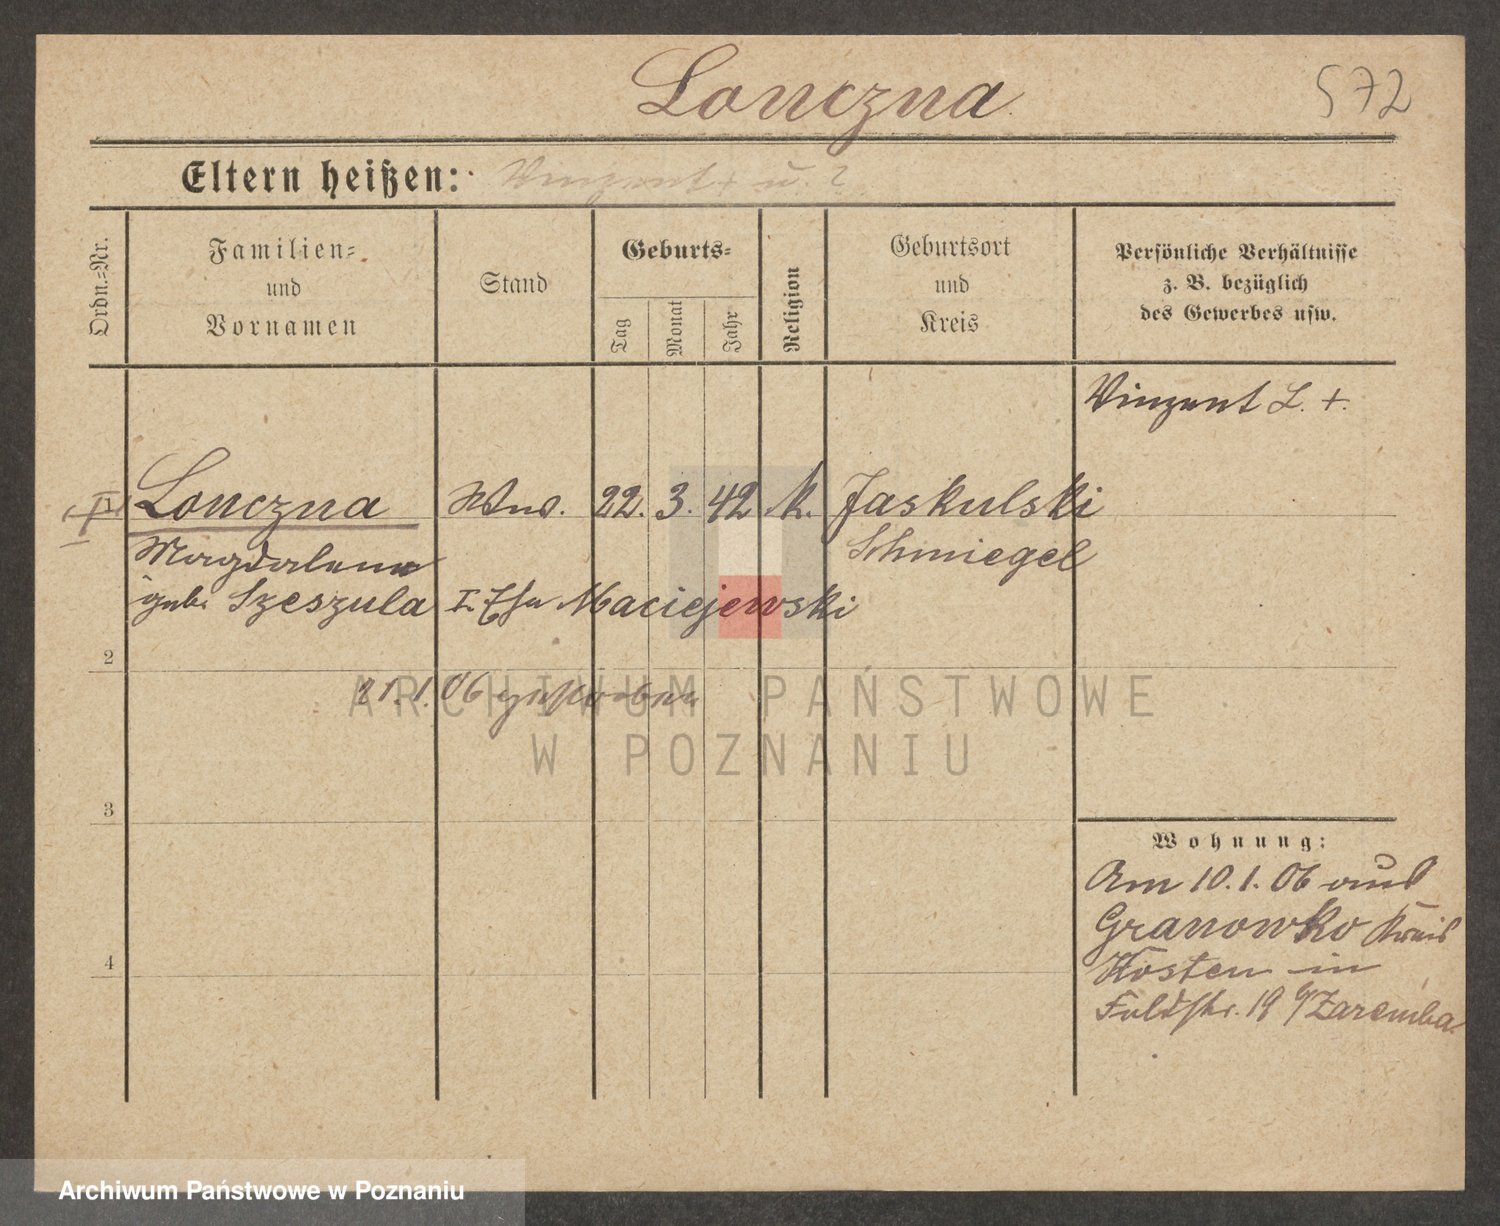 Lonczna
572
Eltern heißen: Vinzent + u. ?
Ordn.=Nr.
Familien=
und
Vornamen
Stand
Geburts=
Tag
Monat
Jahr
Religion
Geburtsort
und
Kreis
Persönliche Verhältnisse
z. B. bezüglich
des Gewerbes usw.
Vinzent L. +.
1 Lonczna Wwe. 22. 3. 42 k. Jaskulski
Magdalena Schmiegel
geb. Szeszula I. Ehe Maciejewski
2
21.1.06 gestorben
ARCHIWUM PAŃSTWOWE
W POZNANIU
3
Wohnung:
Am 10.1.06 aus
Granowko Kreis
Kosten in
4
Feldstr. 19 b/Zaremba
Archiwum Państwowe w Poznaniu